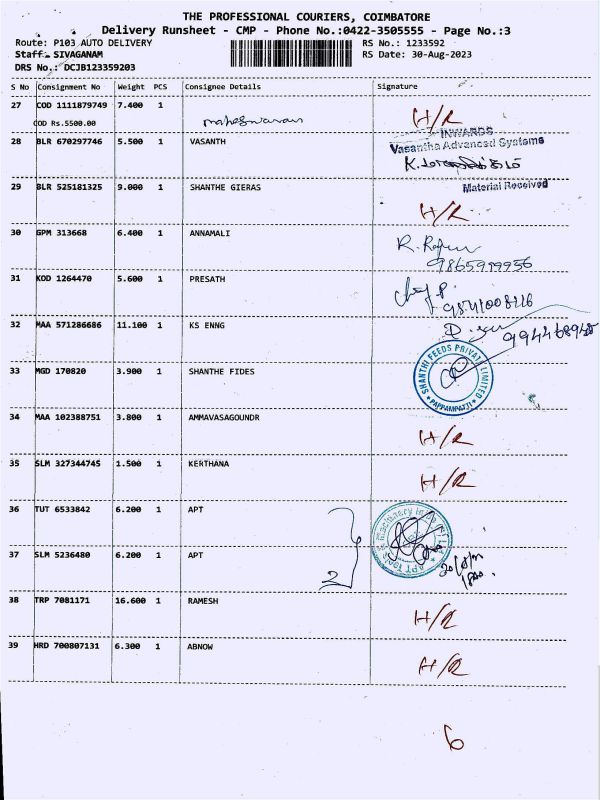 THE PROFESSIONAL COURIERS, COIMBATORE
Delivery Runsheet - CMP - Phone No.:0422-3505555 - Page No.:3
Route: P103 AUTO DELIVERY RS No.: 1233592
Staff: SIVAGANAM RS Date: 30-Aug-2023
DRS No.: DCJB123359203
S No Consignment No Weight PCS Consignee Details Signature
27 COD 1111879749 7.400 1 H/R
COD Rs.5500.00 maheswaran
INWARDS
28 BLR 670297746 5.500 1 VASANTH Vasantha Advanced Systems
Material Received
29 BLR 525181325 9.000 1 SHANTHE GIERAS
H/R
30 GPM 313668 6.400 1 ANNAMALI
9865999956
31 KOD 1264470 5.600 1 PRESATH
32 MAA 571286686 11.100 1 KS ENNG
33 MGD 170820 3.900 1 SHANTHE FIDES
SHANTHI FEEDS PRIVATE LIMITED
* PAPPAMPATTI *
34 MAA 102388751 3.800 1 AMMAVASAGOUNDR
H/R
35 SLM 327344745 1.500 1 KERTHANA
H/R
36 TUT 6533842 6.200 1 APT
37 SLM 5236480 6.200 1 APT
2
38 TRP 7081171 16.600 1 RAMESH
H/R
39 HRD 700807131 6.300 1 ABNOW
H/R
6